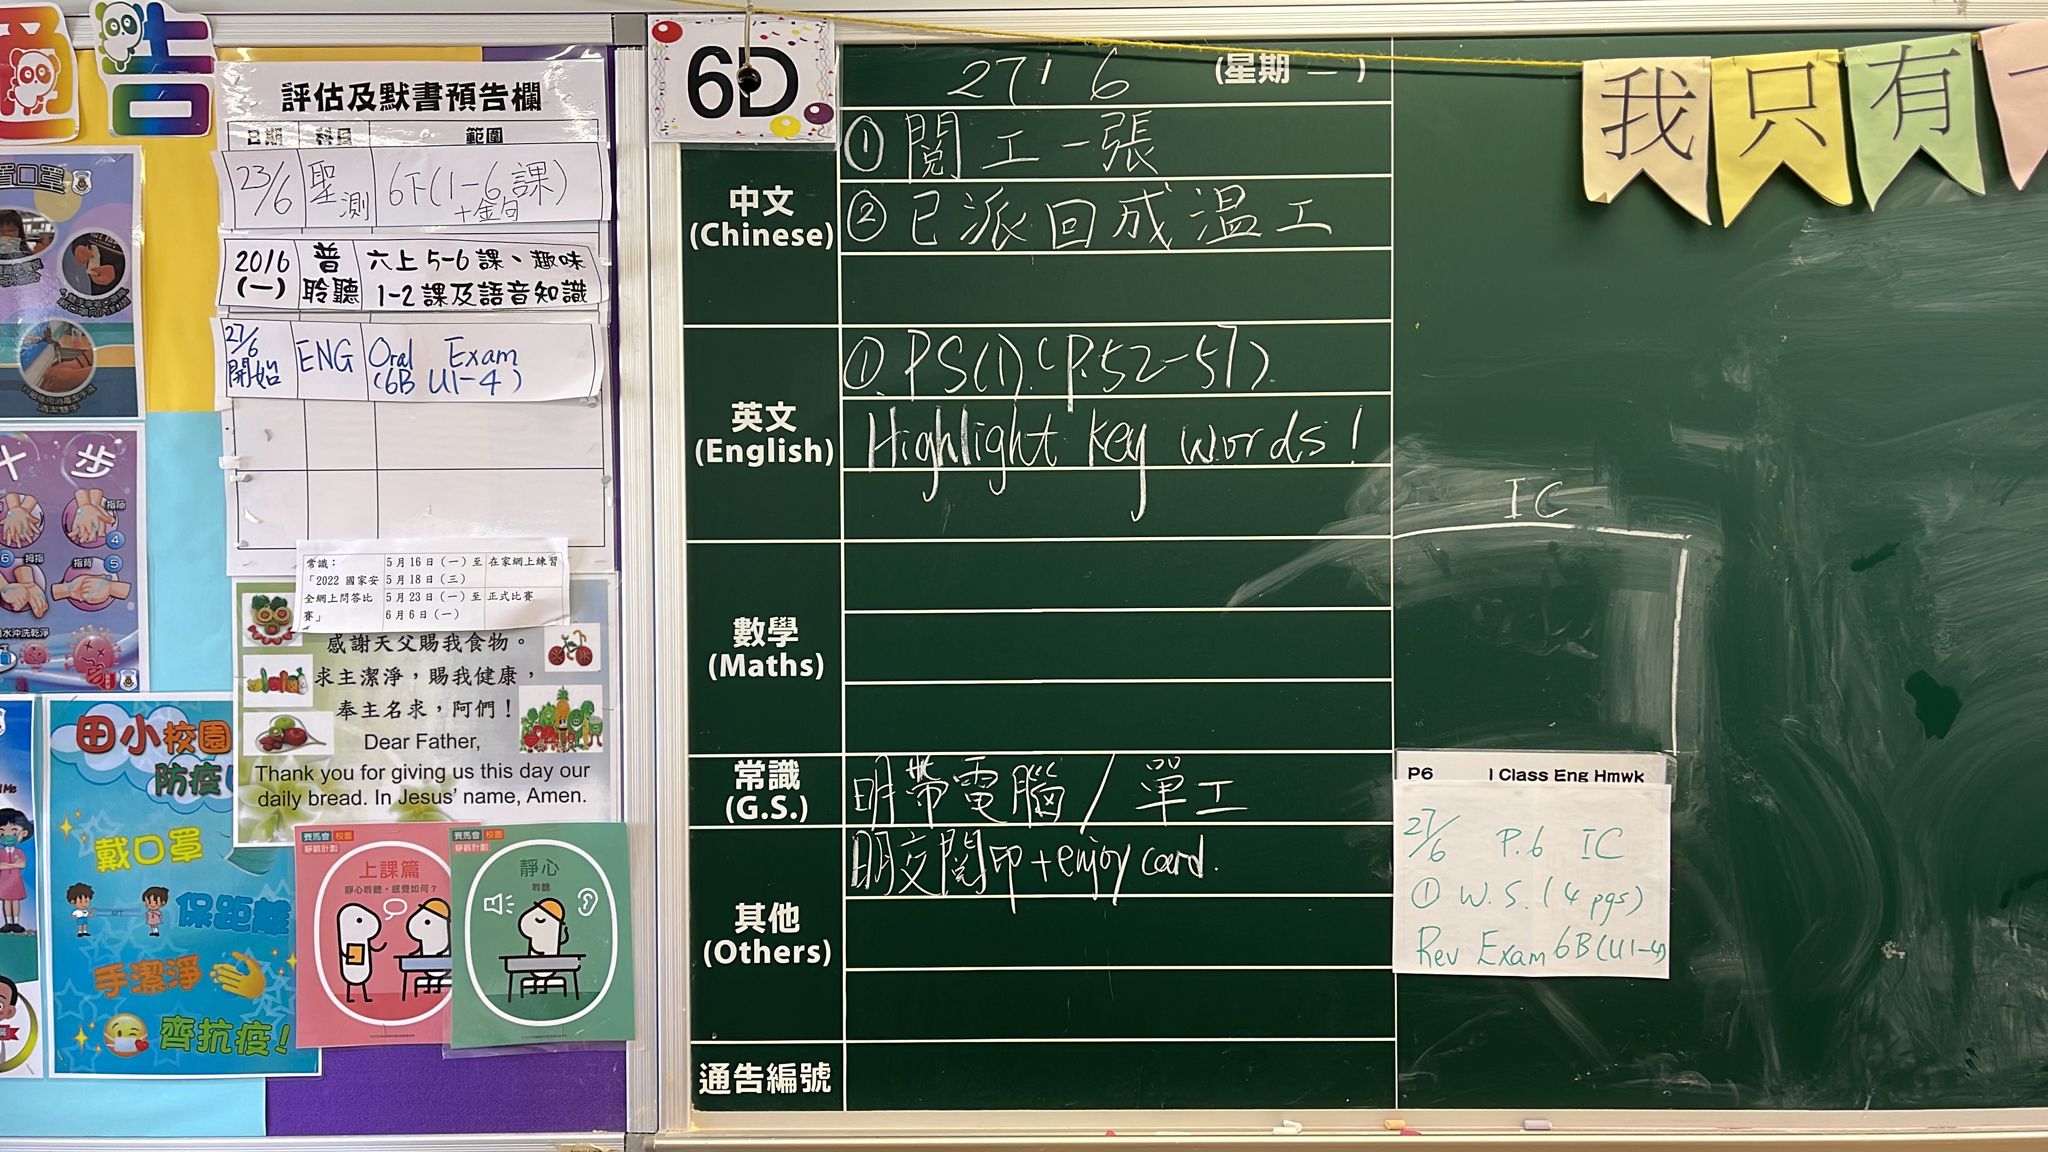 通告
評估及默書預告欄
日期 科目 範圍
23/6 聖測 6下(1-6課)
+金句
20/6 普 六上5-6課、趣味
(一) 聆聽 1-2課及語音知識
27/6 ENG Oral Exam
開始 (6B U1-4)
常識： 5月16日(一)至 在家網上練習
「2022 國家安 5月18日(三)
全網上問答比 5月23日(一)至 正式比賽
賽」 6月6日(一)
感謝天父賜我食物。
求主潔淨，賜我健康，
奉主名求，阿們！
Dear Father,
Thank you for giving us this day our
daily bread. In Jesus' name, Amen.
置口罩
十 步
指隙
4
6 拇指 指背 5
水沖洗乾淨
田小校園
防疫
戴口罩
保距離
手潔淨
齊抗疫！
賽馬會 校園
靜觀計劃
上課篇
靜心聆聽，感覺如何？
賽馬會 校園
靜觀計劃
靜心
聆聽
6D
27/6 (星期 一)
中文
(Chinese)
① 閱工一張
② 已派回成溫工
英文
(English)
① PS(1).(P.52-57).
Highlight key words!
數學
(Maths)
常識
(G.S.)
明帶電腦/單工
其他
(Others)
明交閱印+enjoy card.
通告編號
我只有一
IC
P6 I Class Eng Hmwk
27/6 P.6 IC
① W.S. (4 pgs)
Rev Exam 6B(U1-4)